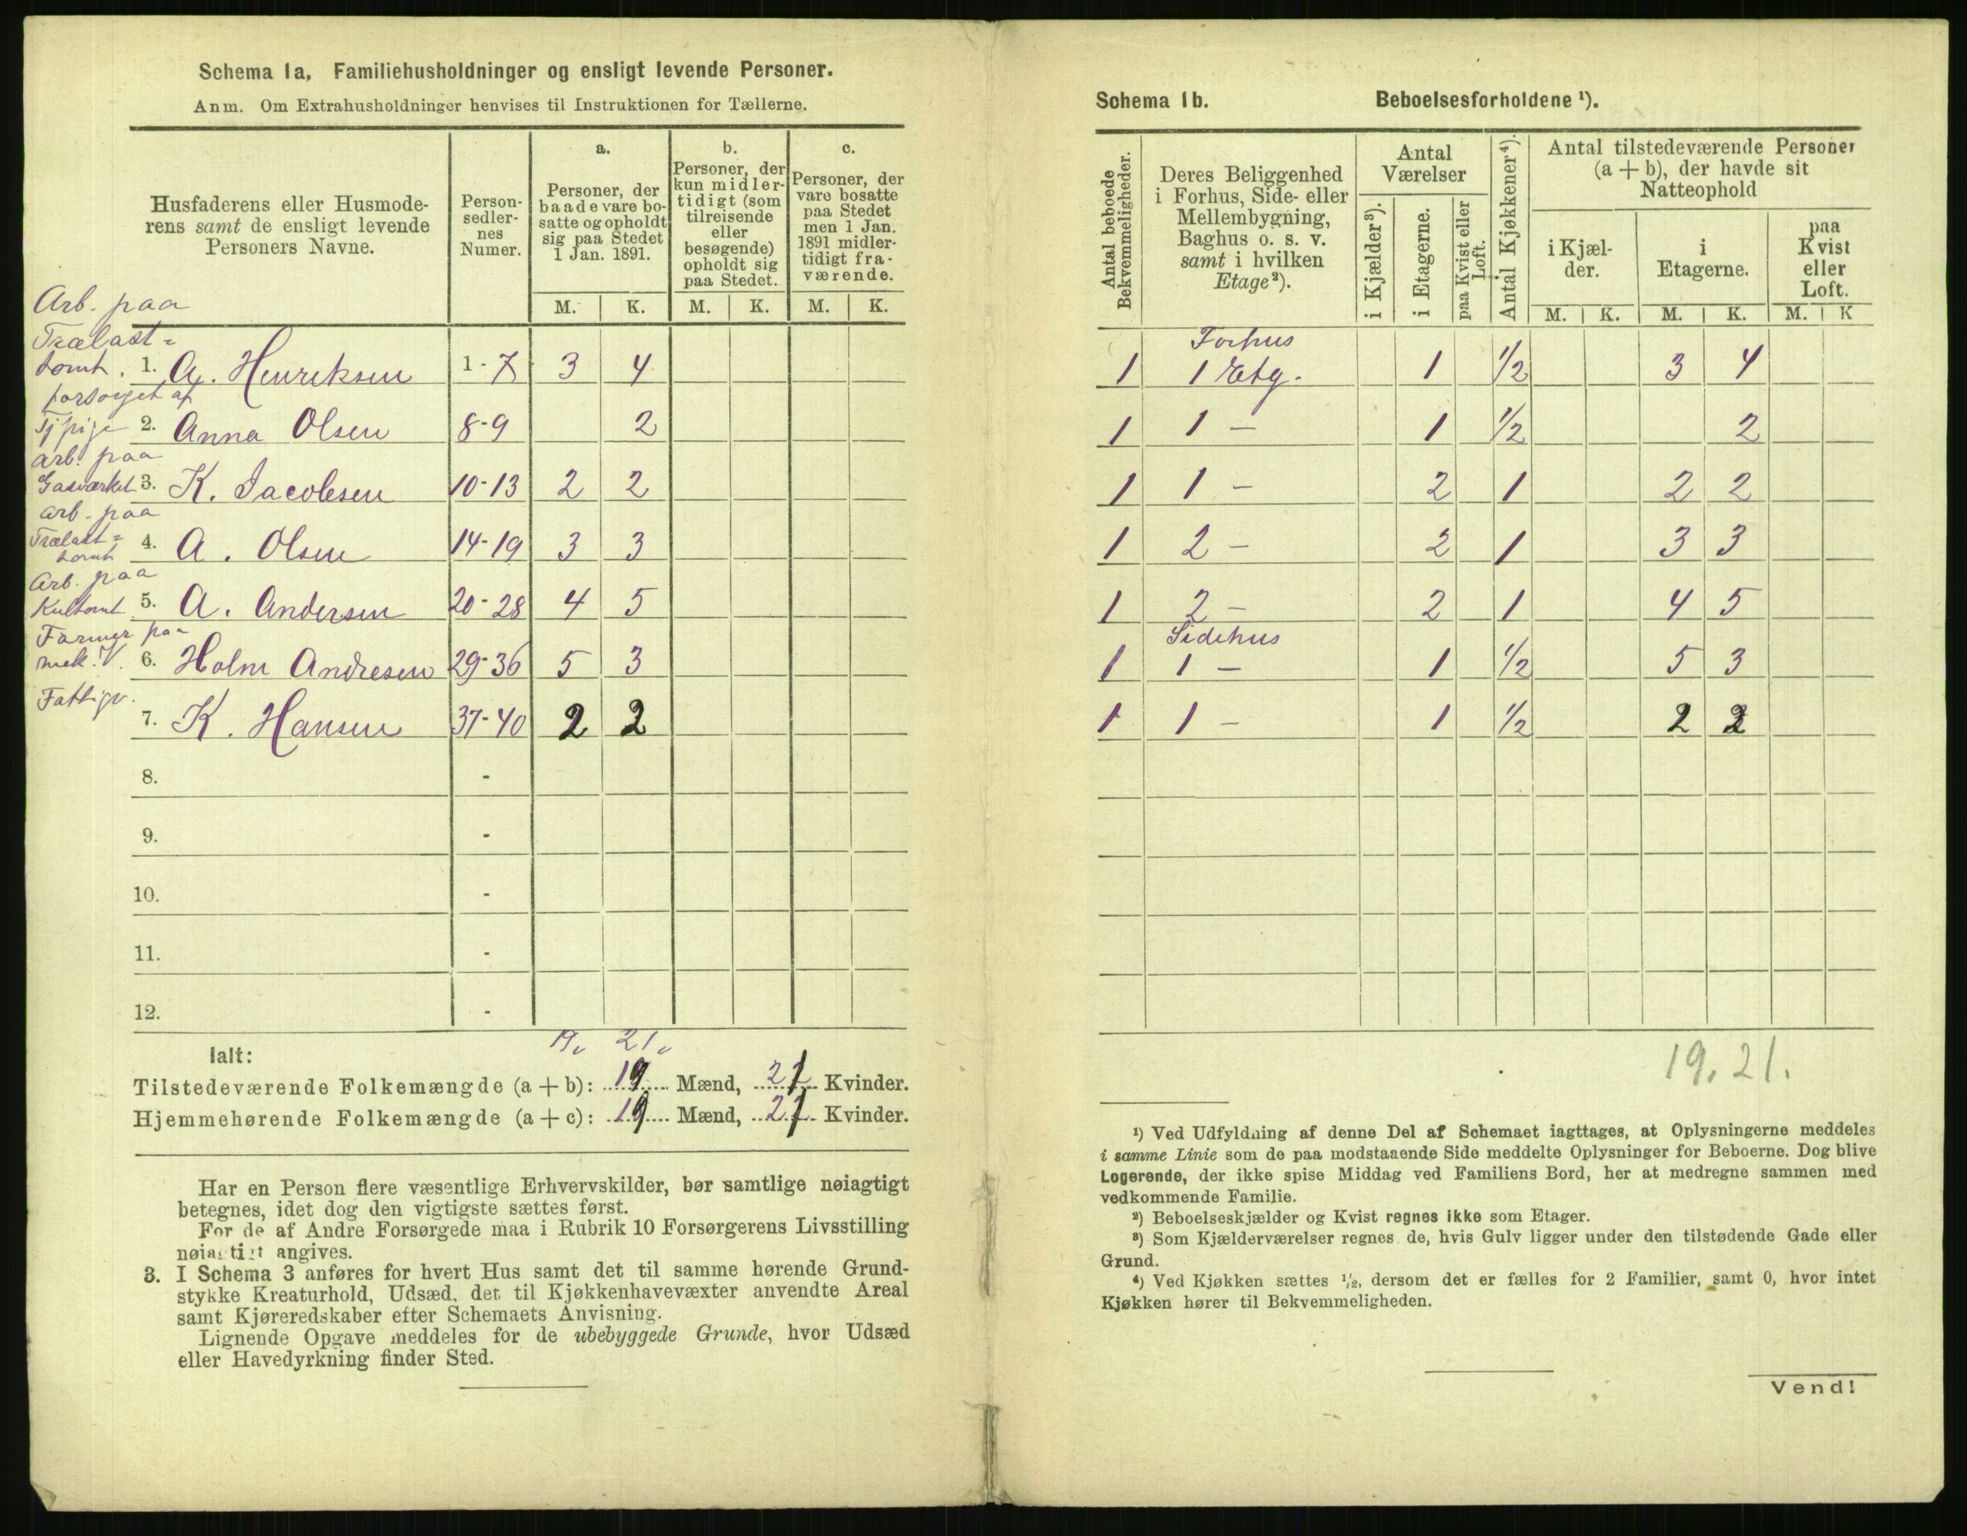 Schema 1a. Familiehusholdninger og ensligt levende Personer.
Anm. Om Extrahusholdninger henvises til Instruktionen for Tællerne.
Husfaderens eller Husmode-
rens samt de ensligt levende
Personers Navne.
Person-
sedler-
nes
Numer.
a.
Personer, der
baade vare bo-
satte og opholdt
sig paa Stedet
1 Jan. 1891.
b.
Personer, der
kun midler-
tidigt (som
tilreisende
eller
besøgende)
opholdt sig
paa Stedet.
c.
Personer, der
vare bosatte
paa Stedet
men 1 Jan.
1891 midler-
tidigt fra-
værende.
M. K. M. K. M. K.
Arb. paa
Trælast=
tomt. 1. A. Henriksen 1-7 3 4
forsørget af
Tj pige 2. Anna Olsen 8-9 2
arb. paa
Gasværket 3. K. Jacobsen 10-13 2 2
arb. paa
Trælast=
tomt 4. A. Olsen 14-19 3 3
Arb. paa
Kultomt 5. A. Andersen 20-28 4 5
Formер paa
mek. V. 6. Holm Andresen 29-36 5 3
Fattigv.
7. K. Hansen 37-40 2 2
8. -
9. -
10. -
11. -
12. -
19. 21.
Ialt:
Tilstedeværende Folkemængde (a + b): 19 Mænd, 21 Kvinder.
Hjemmehørende Folkemængde (a + c): 19 Mænd, 21 Kvinder.
Har en Person flere væsentlige Erhvervskilder, bør samtlige nøiagtigt
betegnes, idet dog den vigtigste sættes først.
For de af Andre Forsørgede maa i Rubrik 10 Forsørgerens Livsstilling
nøiagtigt angives.
3. I Schema 3 anføres for hvert Hus samt det til samme hørende Grund-
stykke Kreaturhold, Udsæd, det til Kjøkkenhavevæxter anvendte Areal
samt Kjøreredskaber efter Schemaets Anvisning.
Lignende Opgave meddeles for de ubebyggede Grunde, hvor Udsæd
eller Havedyrkning finder Sted.
Schema 1b. Beboelsesforholdene ¹).
Antal beboede
Bekvemmeligheder.
Deres Beliggenhed
i Forhus, Side- eller
Mellembygning,
Baghus o. s. v.
samt i hvilken
Etage²).
Antal
Værelser
i Kjælder³).
i Etagerne.
paa Kvist eller
Loft.
Antal Kjøkkener⁴).
Antal tilstedeværende Personer
(a + b), der havde sit
Natteophold
i Kjæl-
der.
i
Etagerne.
paa
Kvist
eller
Loft.
M. K. M. K. M. K
Forhus
1 1 Etg. 1 1/2 3 4
1 1 - 1 1/2 2
1 1 - 2 1 2 2
1 2 - 2 1 3 3
1 2 - 2 1 4 5
Sidehus
1 1 - 1 1/2 5 3
1 1 - 1 1/2 2 2
19. 21.
¹) Ved Udfyldning af denne Del af Schemaet iagttages, at Oplysningerne meddeles
i samme Linie som de paa modstaaende Side meddelte Oplysninger for Beboerne. Dog blive
Logerende, der ikke spise Middag ved Familiens Bord, her at medregne sammen med
vedkommende Familie.
²) Beboelseskjælder og Kvist regnes ikke som Etager.
³) Som Kjælderværelser regnes de, hvis Gulv ligger under den tilstødende Gade eller
Grund.
⁴) Ved Kjøkken sættes ½, dersom det er fælles for 2 Familier, samt 0, hvor intet
Kjøkken hører til Bekvemmeligheden.
Vend!